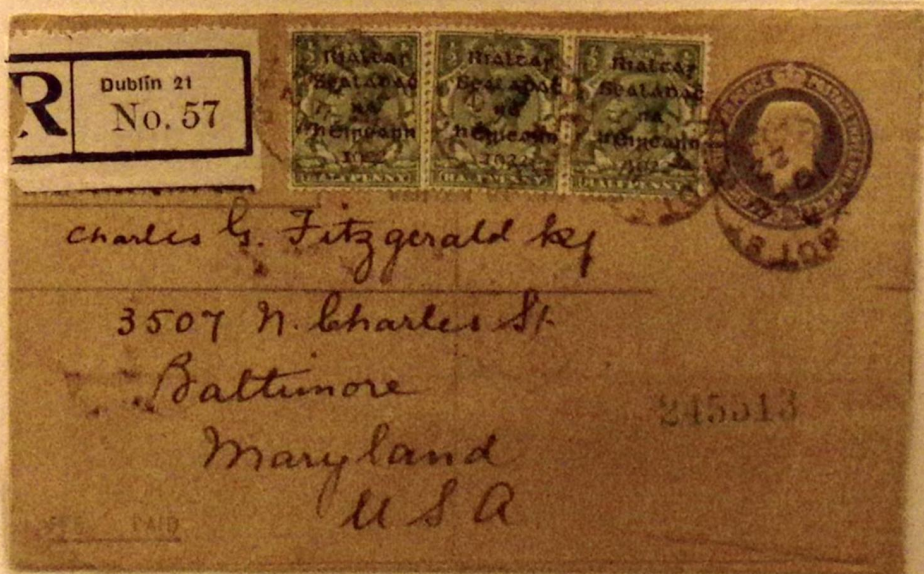 R
Dublin 21
No. 57
Rialtas Sealadać na hÉireann 1922
HALFPENNY
Rialtas Sealadać na hÉireann 1922
HALFPENNY
Rialtas Sealadać na hÉireann 1922
HALFPENNY
Charles G. Fitzgerald Esq
3507 N. Charles St.
Baltimore
Maryland
U S A
245513
PAID